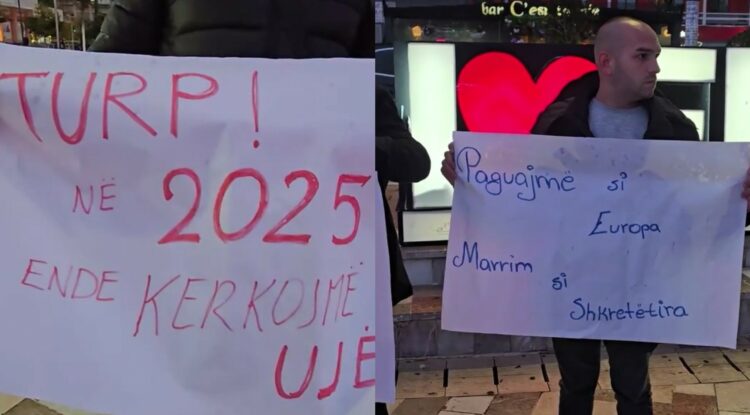 TURP!
NË 2025
ENDE KERKOJMË
UJË
bar C'est la vie
Paguajmë si
Europa
Marrim si
Shkretëtira